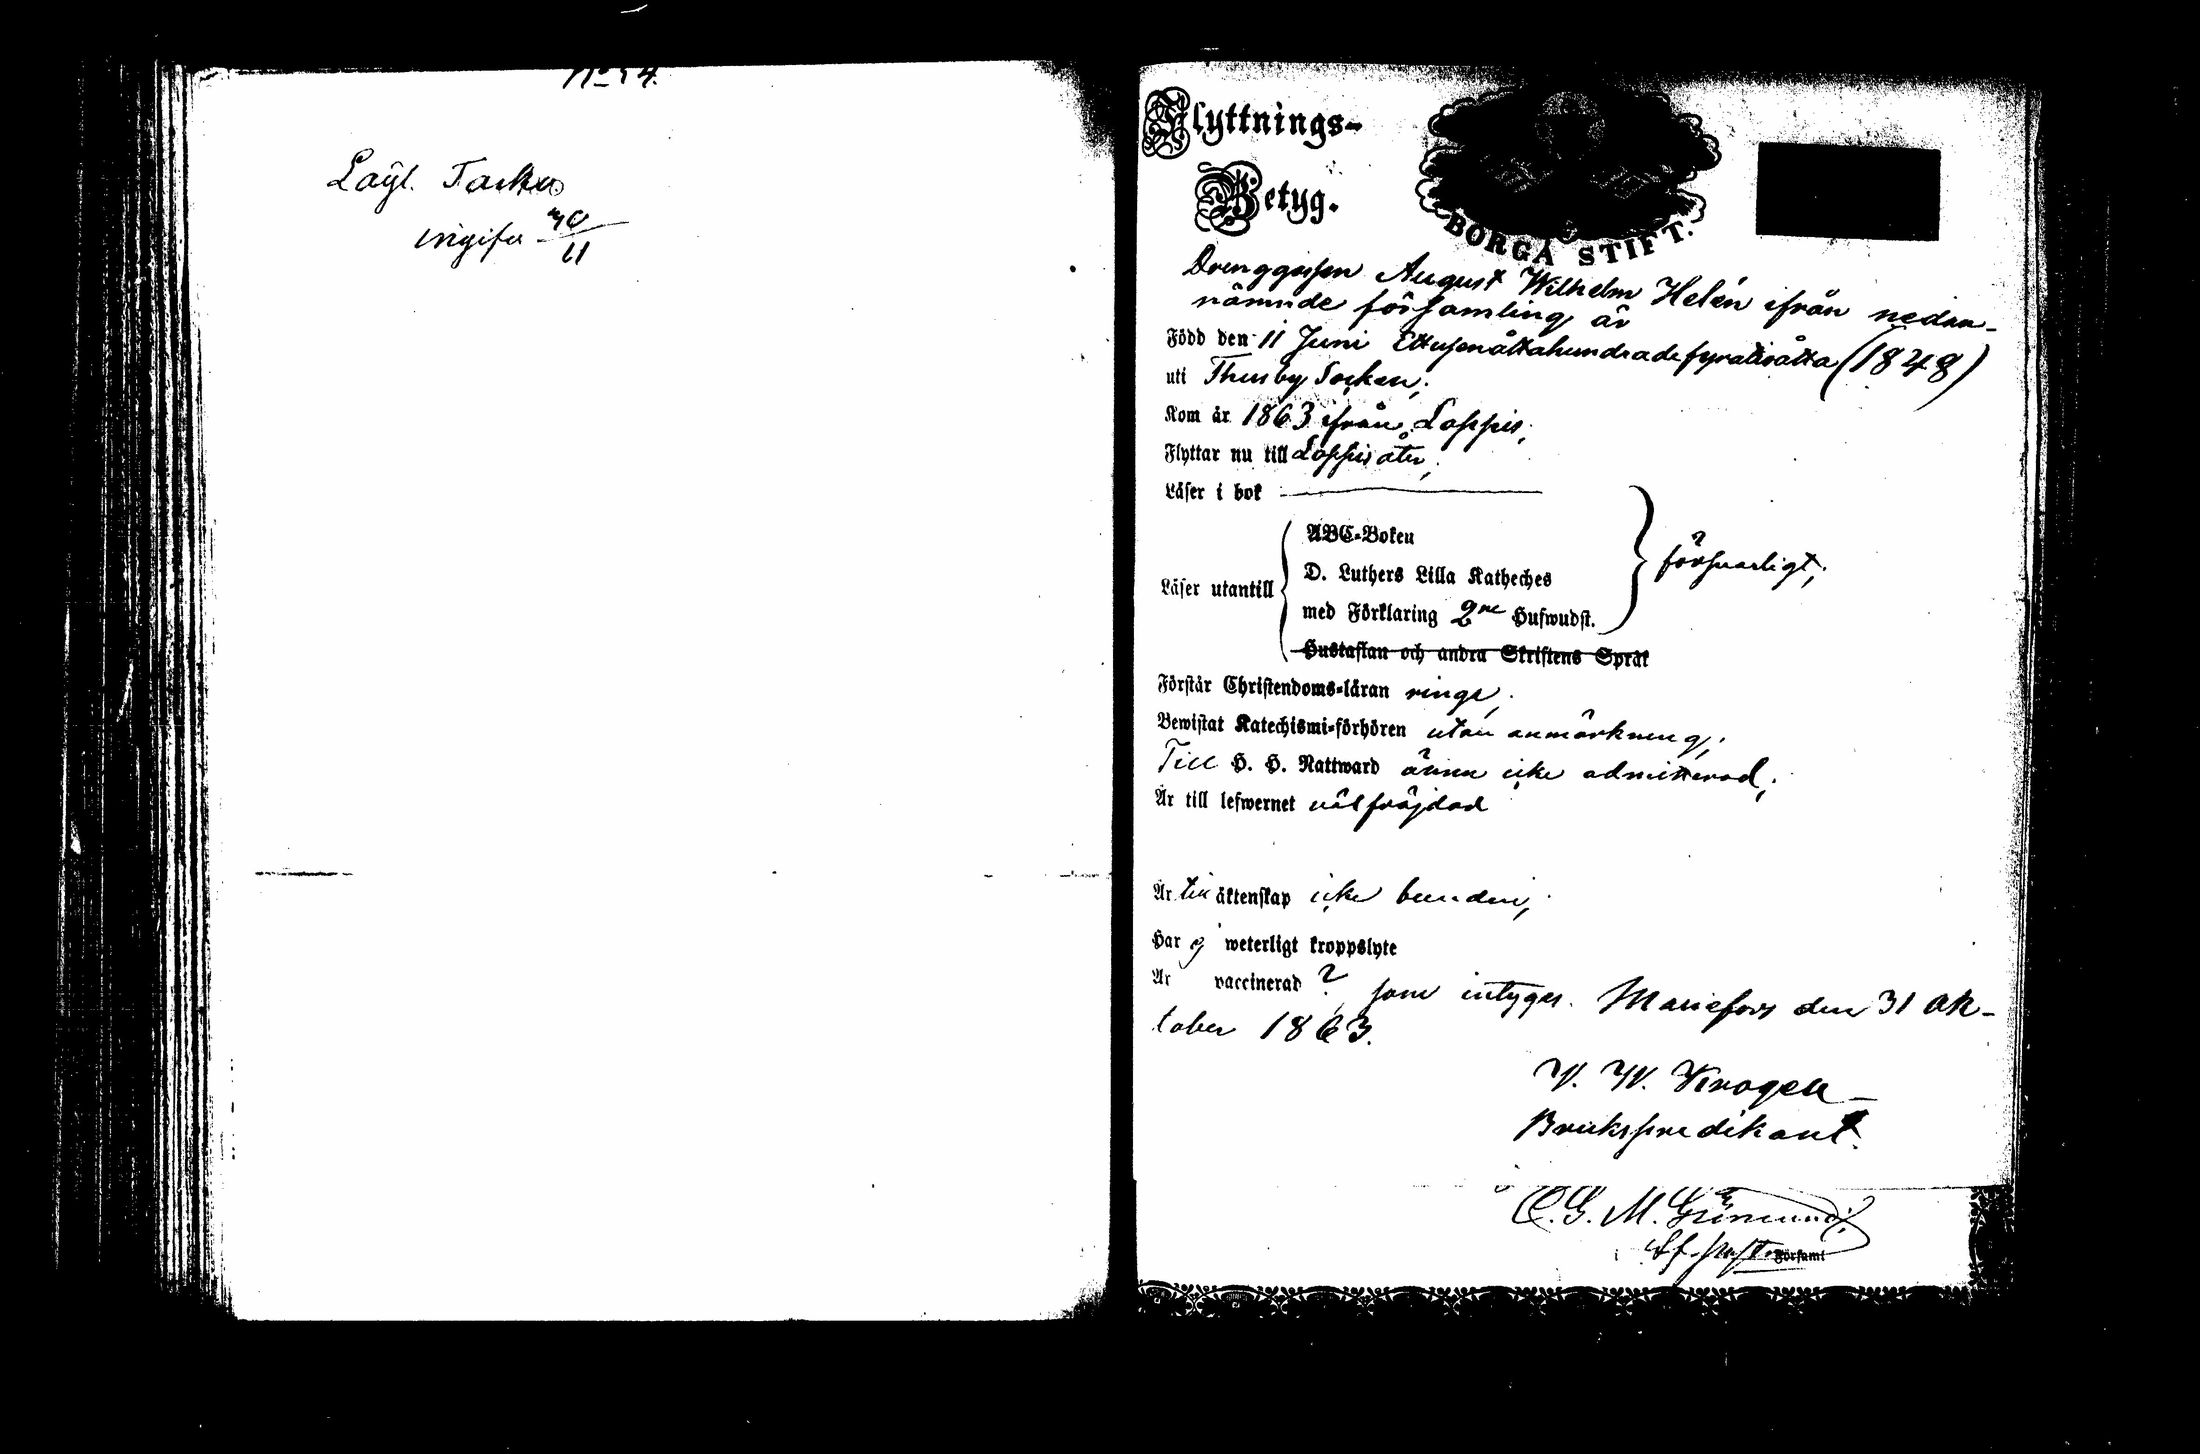 Layl. Tasku
ingifu 30/11
Flyttnings-
Betyg.
BORGÅ STIFT.
Drenggossen August Wilhelm Helén ifrån nedan-
nämnde församling är
Född den 11 Juni Ettusenåttahundradefyratioåtta (1848)
uti Thusby Socken;
Kom år 1863 ifrån Loppis;
Flyttar nu till Loppis åter;
Läser i bok
ABC-Boken
D. Luthers Lilla Katheches
Läser utantill
försvarligt;
med Förklaring 2ne Hufwudst.
Hustaflan och andra Skriftens Språk
Förstår Christendoms-läran ringa;
Bewistat Katechismi-förhören utan anmärkning;
Till H. H. Nattward ännu icke admitterad;
Är till lefwernet välfräjdad
Är till äktenskap icke bunden;
Har ej weterligt kroppslyte
Är vaccinerad ? som intygas. Mariefors den 31 Ok-
tober 1863.
V. W. Krogell
Brukspredikant
C. G. M.
i Församl